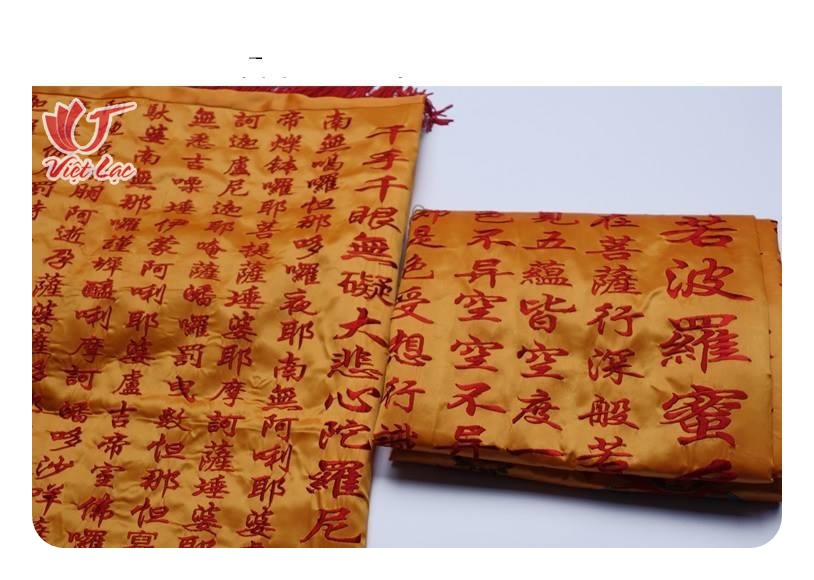 千手千眼無礙大悲心陀羅尼
南無嗚囉怛那哆囉夜耶南無阿唎耶婆
帝爍鉢囉耶菩提薩埵婆耶摩訶薩埵婆耶
訶迦盧尼迦耶唵薩皤囉罰曳數怛那怛寫
無悉吉嘌埵伊蒙阿唎耶婆盧吉帝室佛囉
馱婆南無那囉謹墀醯唎摩訶皤哆沙咩薩
朋阿逝孕薩婆薩
若波羅蜜
在菩薩行深般若
見五蘊皆空度一
色不异空空不异
是色受想行識
Việt Lạc